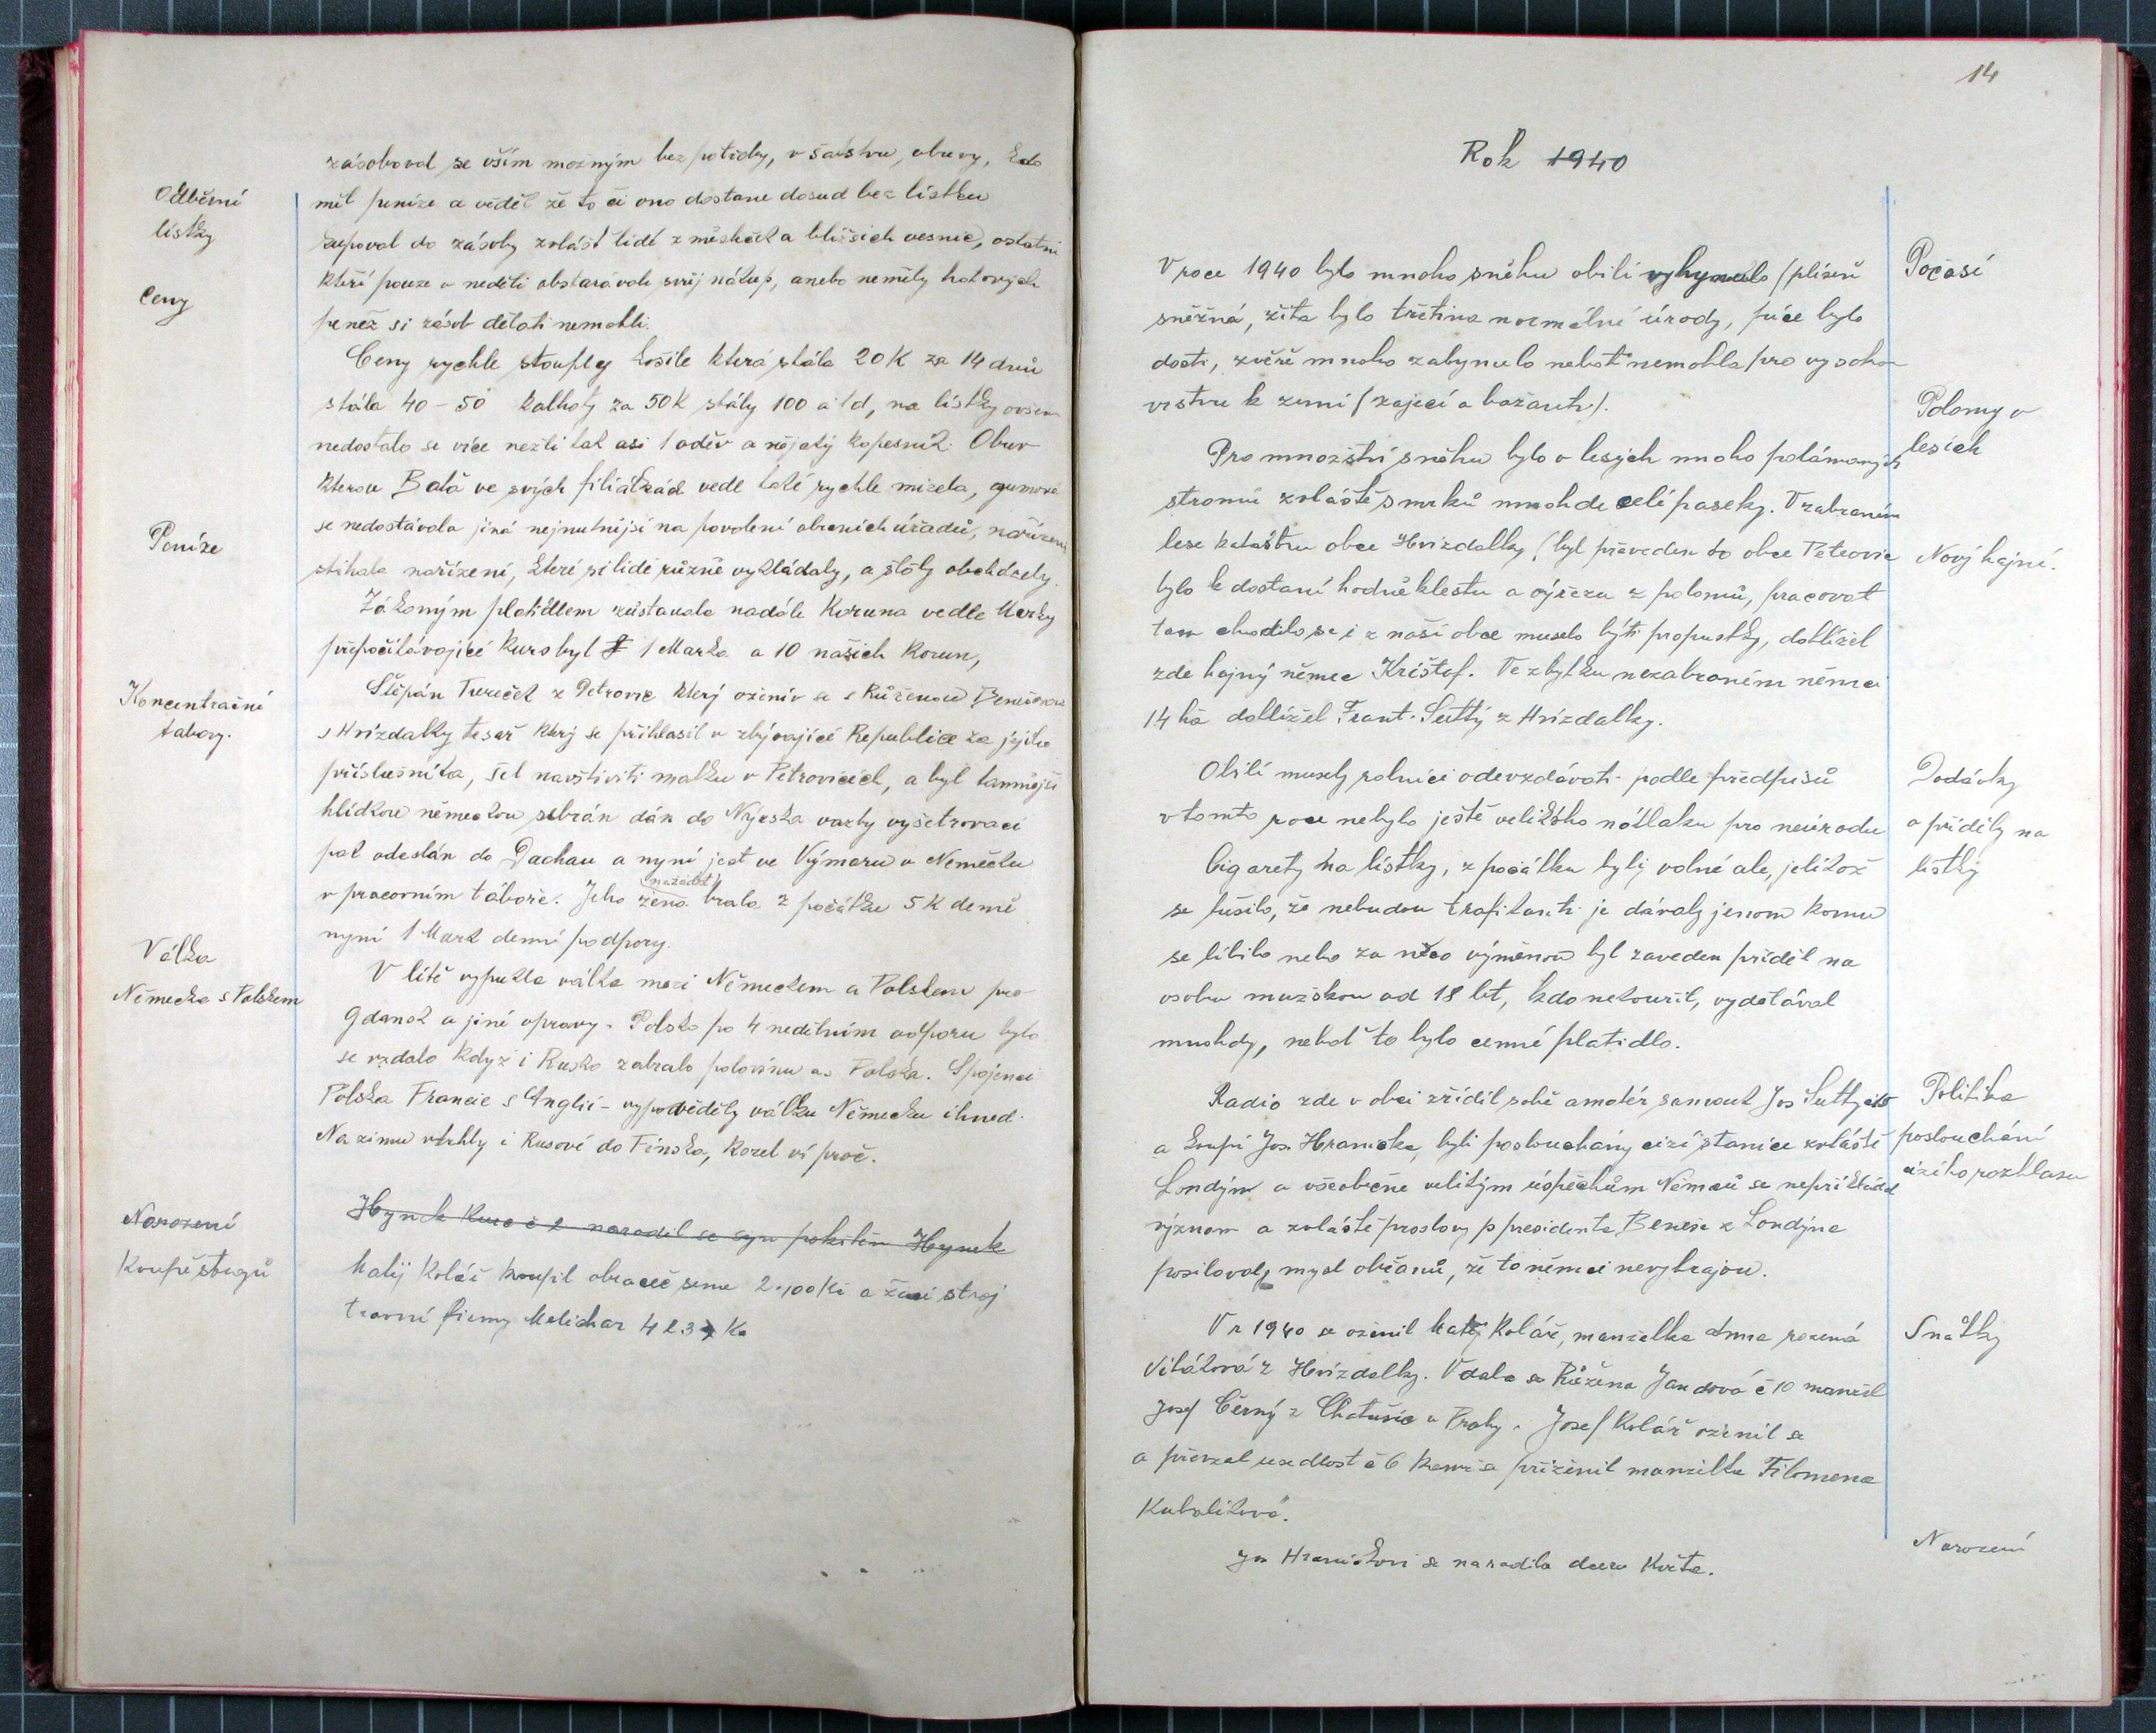 Odběrní
lístky
Ceny
Peníze
Koncentrační
tabory.
Válka
Německa s Polskem
Narození
Koupě strojů
zásoboval se vším možným bez potíčky, v šatstvu, obuvy, kdo
měl peníze a věděl že to či ono dostane dosud bez lístku
kupoval do zásoby zvlášť lidé z městeček a bližsích vesnic, ostatní
kteří pouze v neděli obstarávali svůj nákup, anebo neměly hotových
peněz si zásob dělati nemohli.
Ceny rychle stouply košile která stála 20 K za 14 dnů
stála 40 - 50 kalhoty za 50 K stály 100 atd, na lístky ovšem
nedostalo se více nežli tak asi 1 oděv a nějaký kapesník. Obuv
kterou Baťa ve svých filiálkách vedl také rychle mizela, gumová
se nedostávala jiná nejnutnější na povolení obecních úřadů, nařízení
stíhala nařízení, které si lidé různě vykládaly, a stály obcházely.
Zákoným platidlem zůstavala nadále Koruna vedle Marky
přepočítávající kurs byl 1 Marka a 10 našich Korun,
Štěpán Tureček z Petrovic který oženiv se s Růženou Benešovou
z Hvízdalky tesař který se přihlasil v zbývající Republice za jejího
příslušníka, šel navštíviti matku v Petrovicích, a byl tamnější
hlídkou německou sebrán dán do Nýrska vazby vyšetrovací
pak odeslán do Dachau a nyní jest ve Výmaru v Německu
v pracovním táboře. Jeho žena (na žádost) brala z počátku 5 K deně
nyní 1 Mark denní podpory.
V létě vypukla válka mezi Německem a Polskem pro
Gdansk a jiné opravy. Polsko po 4 nedělním odporu bylo
se vzdalo když i Rusko zabralo polovinu as Polska. Spojenci
Polska Francie s Anglií - vypověděly válku Německu ihned.
Na zimu vtrhly i Rusové do Finska, kozel ví proč.
Hynek Kur č 2 narodil se syn pokřtěn Hynek
Matěj Kolář koupil obraceč sena 2.100 Kč a žací stroj
travní firmy Melichar 4237 K
14
Rok 1940
V roce 1940 bylo mnoho sněhu obilí vyhynulo (plíseň
sněžná, žita bylo třetina normální úrody, píce bylo
dosti, zvěře mnoho zahynulo neboť nemohla pro vysokou
vrstvu k zemi (zajeci a bažanti).
Pro množství sněhu bylo v lesých mnoho polámaných
stromů zvláště smrků mnohde celé paseky. V zabraném
lese katastru obce Hvizdalky, (byl převeden do obce Petrovic
bylo k dostaní hodně klestu a výřezu z polomů, pracovat
tam chodilo se i z naší obce muselo býti propustky, dohlížel
zde hajný němec Krištof. Ve zbytku nezabraném němci
14 ha dohlížel Frant. Sutty z Hvízdalky.
Obilí musely rolníci odevzdávati podle předpisů
v tomto roce nebylo ještě velikého nátlaku pro neúrodu
Cigarety na lístky, z počátku byly volné ale, jelikož
se tušilo, že nebudou trafikanti je dávaly jenom komu
se líbilo nebo za něco výměnou byl zaveden příděl na
osobu mužskou od 18 let, kdo nekouřil, vydělával
mnohdy, neboť to bylo cenné platidlo.
Radio zde v obci zřídil sobě amatér samouk Jos Sutty č 15
a koupí Jos. Hranička, byli poslouchány cizí stanice zvláště
Londýn a všeobecne velikým úspěchům Němců se nepřikládal
význam a zvláště proslovy p presidenta Beneše z Londýna
posilovaly mysl občanů, že to němci nevyhrajou.
V r 1940 se oženil Matěj Kolář, manželka Anna rozená
Vitáková z Hvízdalky. Vdala se Růžena Jandová č 10 manžel
Josef Černý z Chotušic u Prahy. Josef Kolář oženil se
a převzal usedlost č 6 kam se přiženil manželka Filomena
Kubalíková.
Jos Hraničkovi se narodila dcera Květa.
Počasí
Polomy v
lesích
Nový hajní.
Dodávky
a příděly na
lístky
Politika
poslouchání
cizího rozhlasu
Snátky
Narození